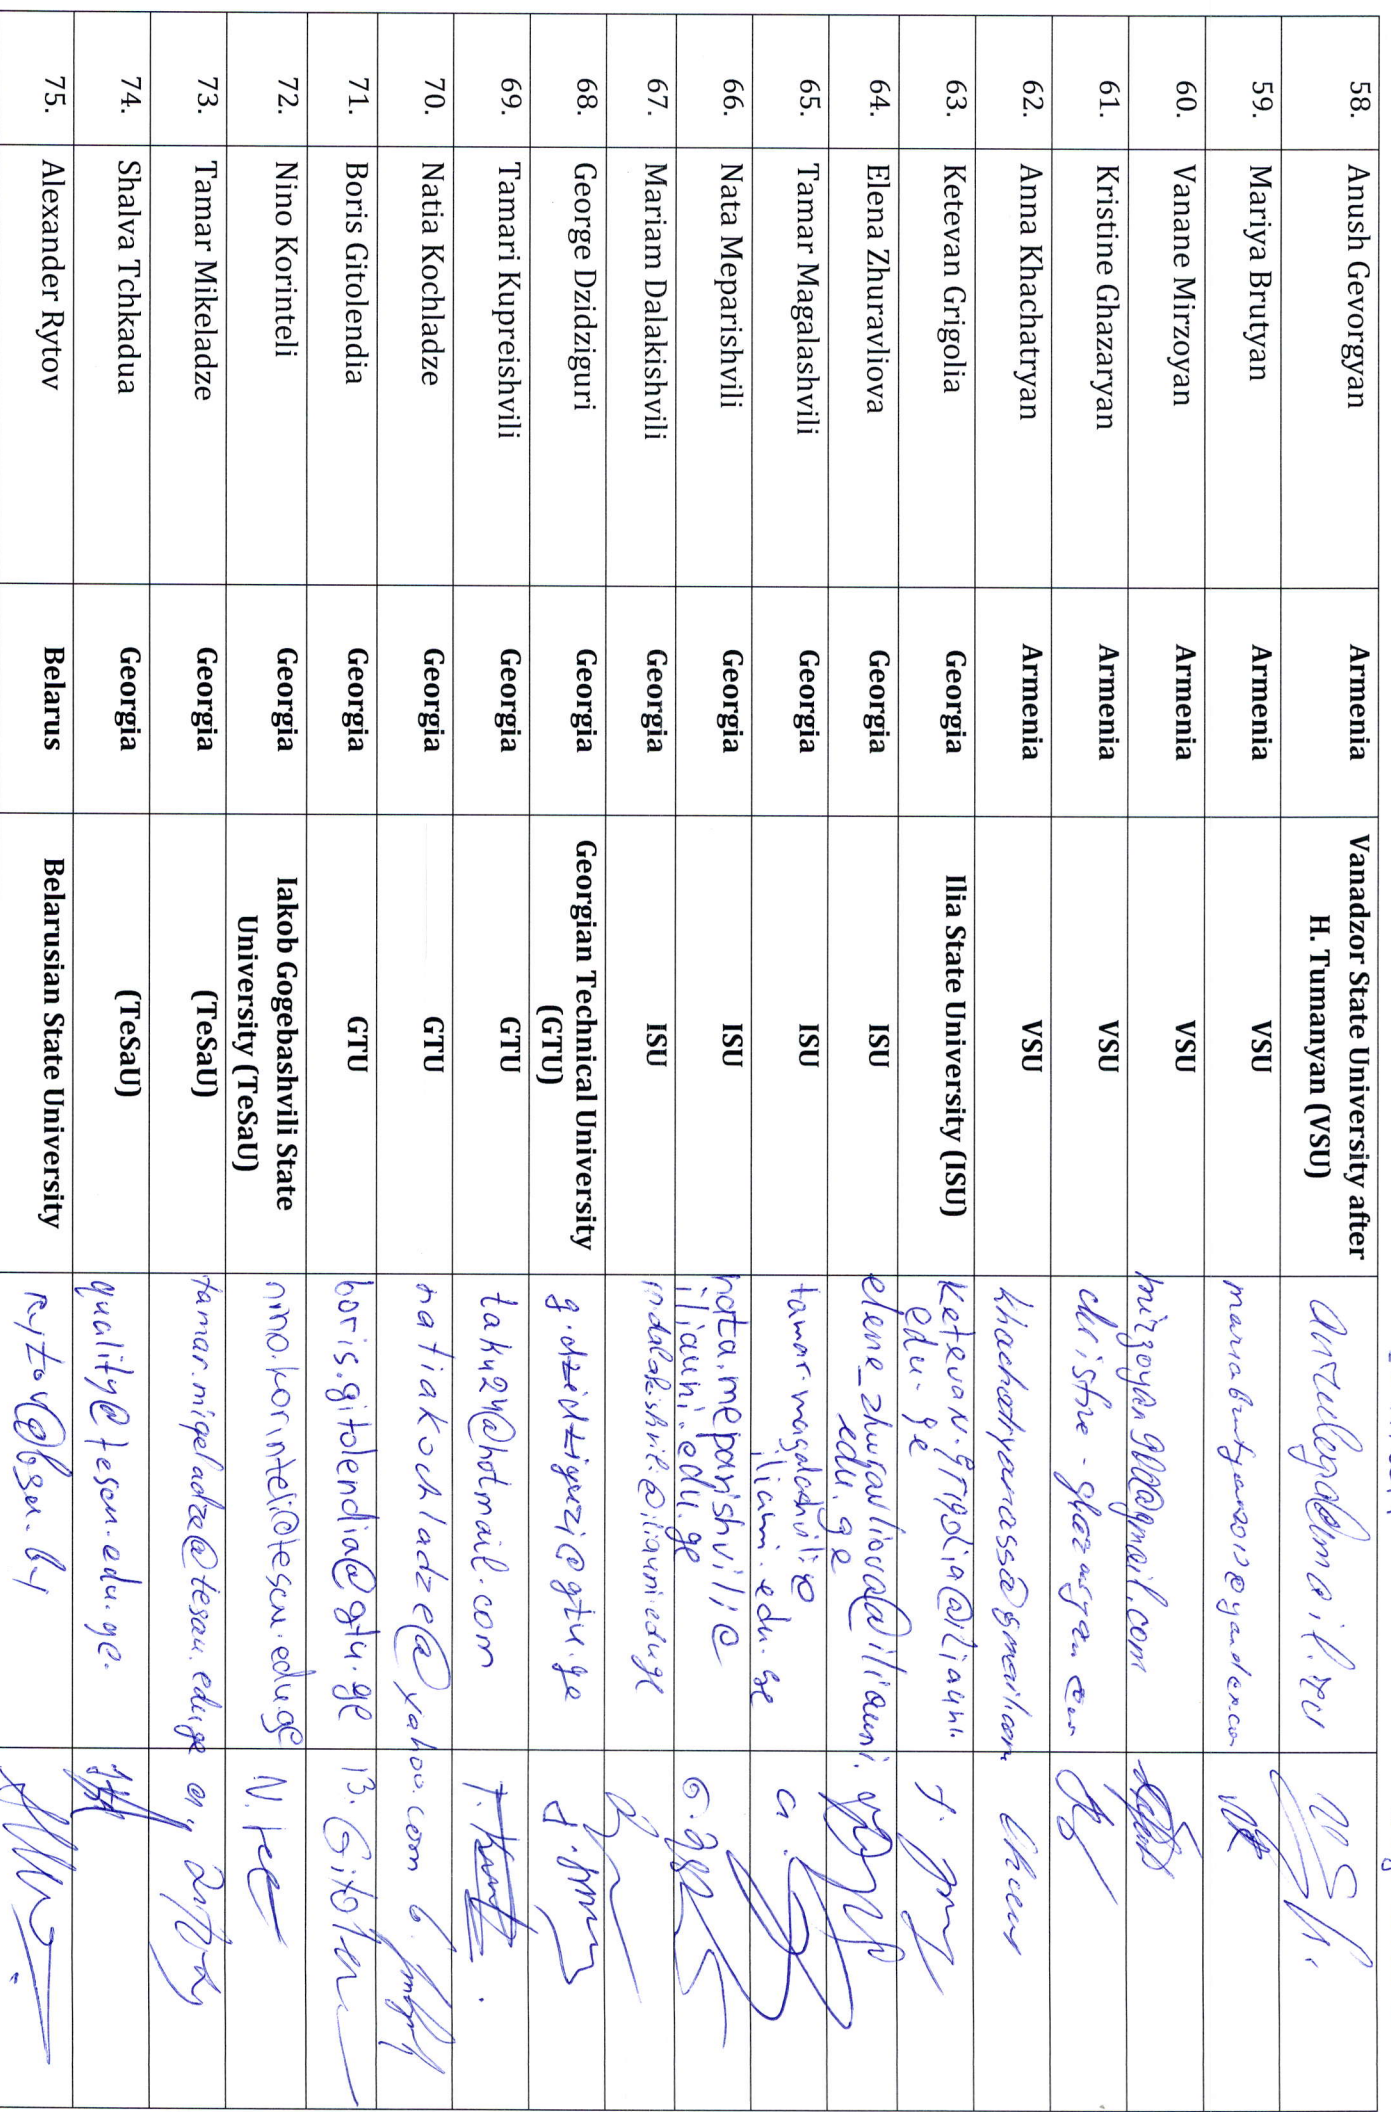 58. Anush Gevorgyan Armenia Vanadzor State University after
H. Tumanyan (VSU)
59. Mariya Brutyan Armenia VSU
60. Vanane Mirzoyan Armenia VSU mirzoyan.900@gmail.com
61. Kristine Ghazaryan Armenia VSU
62. Anna Khachatryan Armenia VSU khachatryanass@gmail.com
63. Ketevan Grigolia Georgia Ilia State University (ISU) ketevan.grigolia@iliauni.
edu.ge
64. Elena Zhuravliova Georgia ISU elene_zhuravliova@iliauni.
edu.ge
65. Tamar Magalashvili Georgia ISU tamar.magalashvili@
iliauni.edu.ge
66. Nata Meparishvili Georgia ISU nata.meparishvili@
iliauni.edu.ge
67. Mariam Dalakishvili Georgia ISU mdalakishvili@iliauni.edu.ge
68. George Dzidziguri Georgia Georgian Technical University
(GTU) g.dzidziguri@gtu.ge
69. Tamari Kupreishvili Georgia GTU taku24@hotmail.com
70. Natia Kochladze Georgia GTU natiakochladze@yahoo.com
71. Boris Gitolendia Georgia GTU boris.gitolendia@gtu.ge B. Gitolen
72. Nino Korinteli Georgia Iakob Gogebashvili State
University (TeSaU) nino.korinteli@tesau.edu.ge
73. Tamar Mikeladze Georgia (TeSaU) tamar.miqeladze@tesau.edu.ge
74. Shalva Tchkadua Georgia (TeSaU) quality@tesau.edu.ge.
75. Alexander Rytov Belarus Belarusian State University Rytov@bsu.by